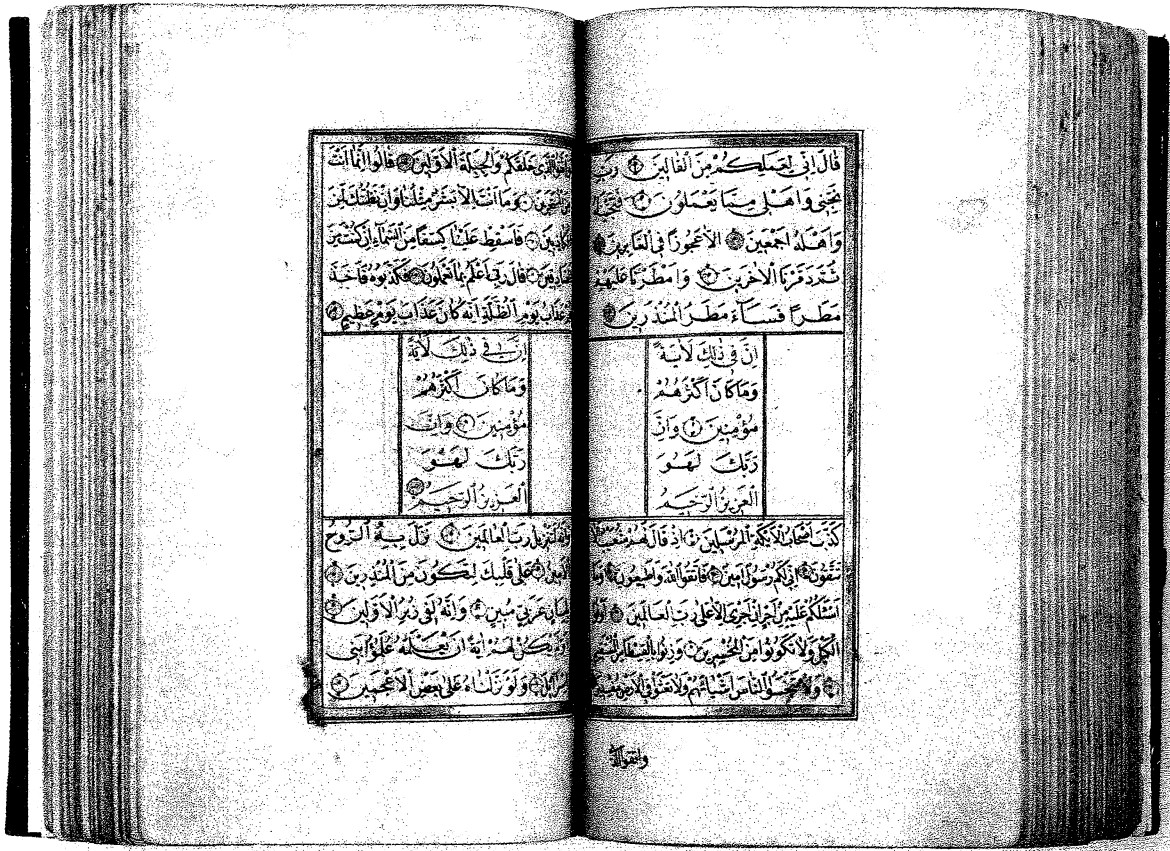 قَالَ اِنّى لِعَمَلِكُمْ مِنَ الْقَالينَ رَبِّ
نَجِّنى وَاَهْلى مِمَّا يَعْمَلُونَ فَنَجَّيْنَا
وَاَهْلَهُ اَجْمَعينَ اِلَّا عَجُوزًا فِى الْغَابِرينَ
ثُمَّ دَمَّرْنَا الْاٰخَرينَ وَاَمْطَرْنَا عَلَيْهِمْ
مَطَرًا فَسَاءَ مَطَرُ الْمُنْذَرينَ
اِنَّ فى ذٰلِكَ لَاٰيَةً
وَمَا كَانَ اَكْثَرُهُمْ
مُؤْمِنينَ وَاِنَّ
رَبَّكَ لَهُوَ
الْعَزيزُ الرَّحيمُ
كَذَّبَ اَصْحَابُ الْاَيْكَةِ الْمُرْسَلينَ اِذْ قَالَ لَهُمْ شُعَيْبٌ اَلَا
تَتَّقُونَ اِنّى لَكُمْ رَسُولٌ اَمينٌ فَاتَّقُوا اللّٰهَ وَاَطيعُونِ وَمَا
اَسْـَٔلُكُمْ عَلَيْهِ مِنْ اَجْرٍ اِنْ اَجْرِىَ اِلَّا عَلٰى رَبِّ الْعَالَمينَ اَوْفُوا
الْكَيْلَ وَلَا تَكُونُوا مِنَ الْمُخْسِرينَ وَزِنُوا بِالْقِسْطَاسِ الْمُسْتَقيمِ
وَلَا تَبْخَسُوا النَّاسَ اَشْيَاءَهُمْ وَلَا تَعْثَوْا فِى الْاَرْضِ مُفْسِدينَ
وَاتَّقُوا الَّذى
وَاتَّقُوا الَّذى خَلَقَكُمْ وَالْجِبِلَّةَ الْاَوَّلينَ قَالُوا اِنَّمَا اَنْتَ
مِنَ الْمُسَحَّرينَ وَمَا اَنْتَ اِلَّا بَشَرٌ مِثْلُنَا وَاِنْ نَظُنُّكَ لَمِنَ
الْكَاذِبينَ فَاَسْقِطْ عَلَيْنَا كِسَفًا مِنَ السَّمَاءِ اِنْ كُنْتَ مِنَ
الصَّادِقينَ قَالَ رَبّى اَعْلَمُ بِمَا تَعْمَلُونَ فَكَذَّبُوهُ فَاَخَذَ
هُمْ عَذَابُ يَوْمِ الظُّلَّةِ اِنَّهُ كَانَ عَذَابَ يَوْمٍ عَظيمٍ
اِنَّ فى ذٰلِكَ لَاٰيَةً
وَمَا كَانَ اَكْثَرُهُمْ
مُؤْمِنينَ وَاِنَّ
رَبَّكَ لَهُوَ
الْعَزيزُ الرَّحيمُ
وَاِنَّهُ لَتَنْزيلُ رَبِّ الْعَالَمينَ نَزَلَ بِهِ الرُّوحُ
الْاَمينُ عَلٰى قَلْبِكَ لِتَكُونَ مِنَ الْمُنْذِرينَ
بِلِسَانٍ عَرَبِىٍّ مُبينٍ وَاِنَّهُ لَفى زُبُرِ الْاَوَّلينَ
اَوَلَمْ يَكُنْ لَهُمْ اٰيَةً اَنْ يَعْلَمَهُ عُلَمٰٓؤُا بَنى
اِسْرَائيلَ وَلَوْ نَزَّلْنَاهُ عَلٰى بَعْضِ الْاَعْجَمينَ